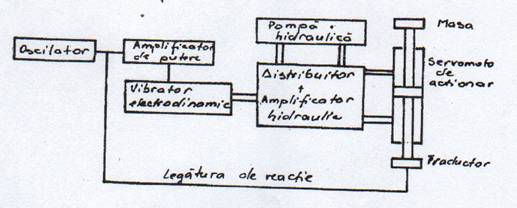 Oscilator
Amplificator
de putere
Vibrator
electrodinamic
Pompă
hidraulică
Distribuitor
+
Amplificator
hidraulic
Masa
Servomoto
de
actionar
Traductor
Legătura de reactie